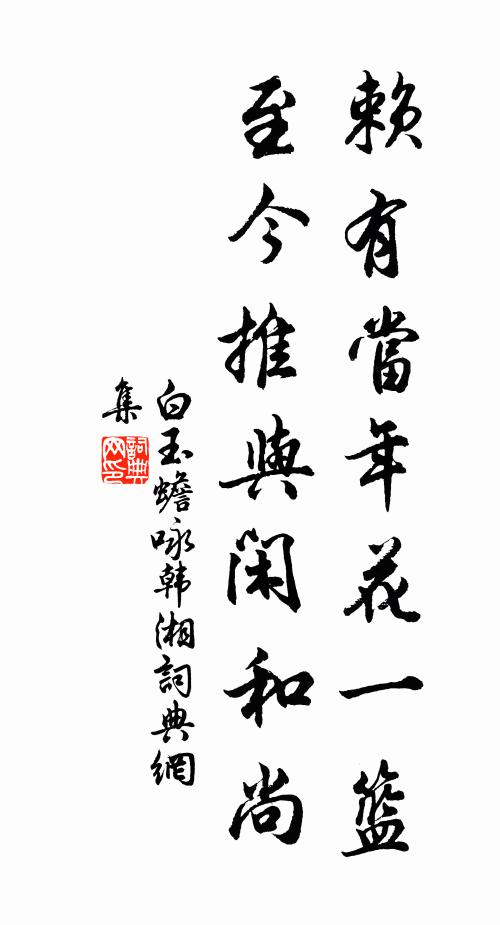 賴有當年花一籃
至今推與閑和尚
白玉蟾咏韩湘詞典網
集
詞典网印